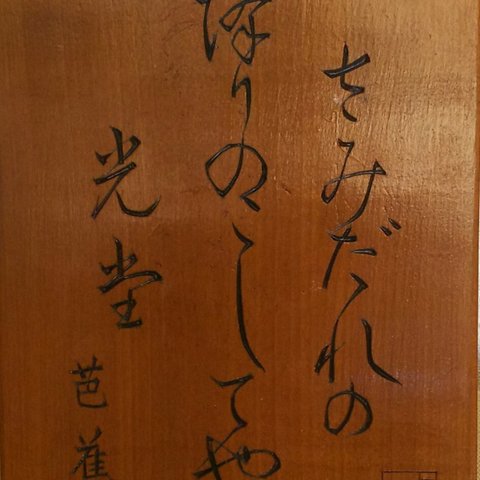 さみだれの
降りのこしてや
光堂
芭蕉